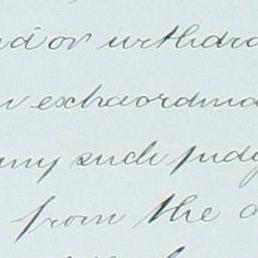 and or withdra
extraordina
any such judg
from the